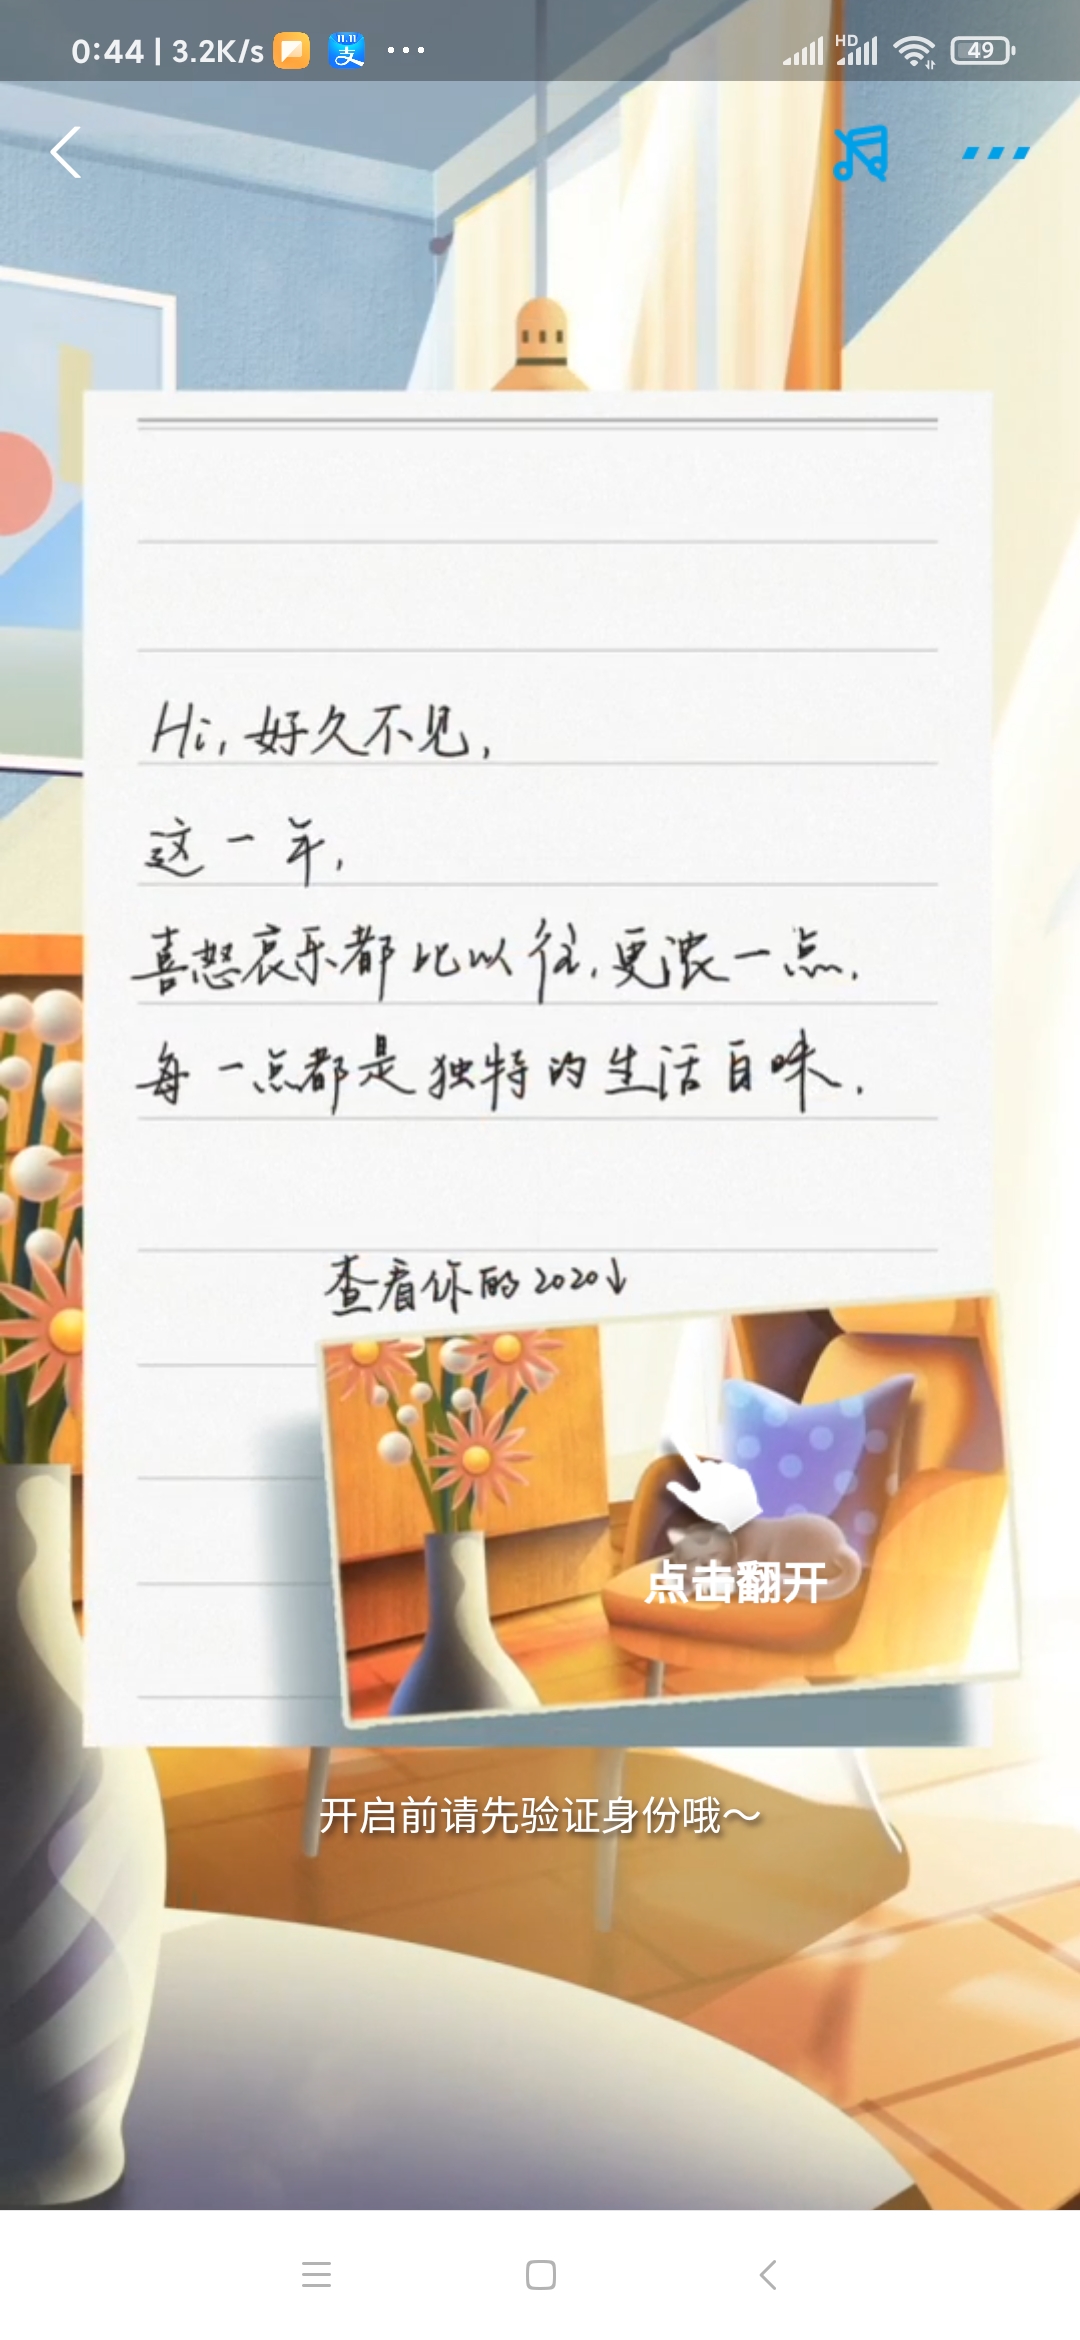 0:44 | 3.2K/s 11.11 支 ... HD 49
Hi, 好久不见,
这一年,
喜怒哀乐都比以往,更浓一点,
每一点都是独特的生活百味.
查看你的2020↓
点击翻开
开启前请先验证身份哦~